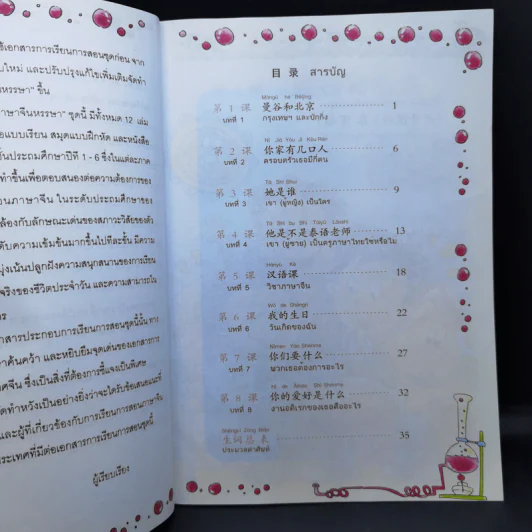 ช้เอกสารการเรียนการสอนชุดก่อน จาก
บใหม่ และปรับปรุงแก้ไขเพิ่มเติมจัดทำ
หรรษา" ขึ้น
าษาจีนหรรษา" ชุดนี้ มีทั้งหมด 12 เล่ม
อแบบเรียน สมุดแบบฝึกหัด และหนังสือ
ชั้นประถมศึกษาปีที่ 1 - 6 ซึ่งในแต่ละภาค
ทำขึ้นเพื่อตอบสนองต่อความต้องการของ
อนภาษาจีน ในระดับประถมศึกษาของ
ล้องกับลักษณะเด่นของสภาวะวิสัยของตัว
ดับความเข้มข้นมากขึ้นไปทีละขั้น มีความ
มุ่งเน้นปลูกฝังความสนุกสนานของการเรียน
จริงของชีวิตประจำวัน และความสามารถใน
าร
อกสารประกอบการเรียนการสอนชุดนี้นั้น ทาง
าค้นคว้า และหยิบยืมจุดเด่นของเอกสารการ
คจีน ซึ่งเป็นสิ่งที่ต้องการชี้แจงเป็นพิเศษ
ัดทำหวังเป็นอย่างยิ่งว่าจะได้รับข้อเสนอแนะที่
และผู้ที่เกี่ยวข้องกับการเรียนการสอนภาษาจีน
ระเทศที่มีต่อเอกสารการเรียนการสอนชุดนี้
ผู้เรียบเรียง
目 录 สารบัญ
Màngǔ hé Běijīng
第 1 课 曼谷和北京 1
บทที่ 1 กรุงเทพฯ และปักกิ่ง
Nǐ Jiā Yǒu Jǐ Kǒu Rén
第 2 课 你家有几口人 6
บทที่ 2 ครอบครัวเธอมีกี่คน
Tā Shì Shuí
第 3 课 她是谁 9
บทที่ 3 เขา (ผู้หญิง) เป็นใคร
Tā Shì bu Shì Tàiyǔ Lǎoshī
第 4 课 他是不是泰语老师 13
บทที่ 4 เขา (ผู้ชาย) เป็นครูภาษาไทยใช่หรือไม่
Hànyǔ Kè
第 5 课 汉语课 18
บทที่ 5 วิชาภาษาจีน
Wǒ de Shēngrì
第 6 课 我的生日 22
บทที่ 6 วันเกิดของฉัน
Nǐmen Yào Shénme
第 7 课 你们要什么 27
บทที่ 7 พวกเธอต้องการอะไร
Nǐ de Àihào Shì Shénme
第 8 课 你的爱好是什么 32
บทที่ 8 งานอดิเรกของเธอคืออะไร
Shēngcí Zǒng Biǎo
生词总表 35
ประมวลคำศัพท์